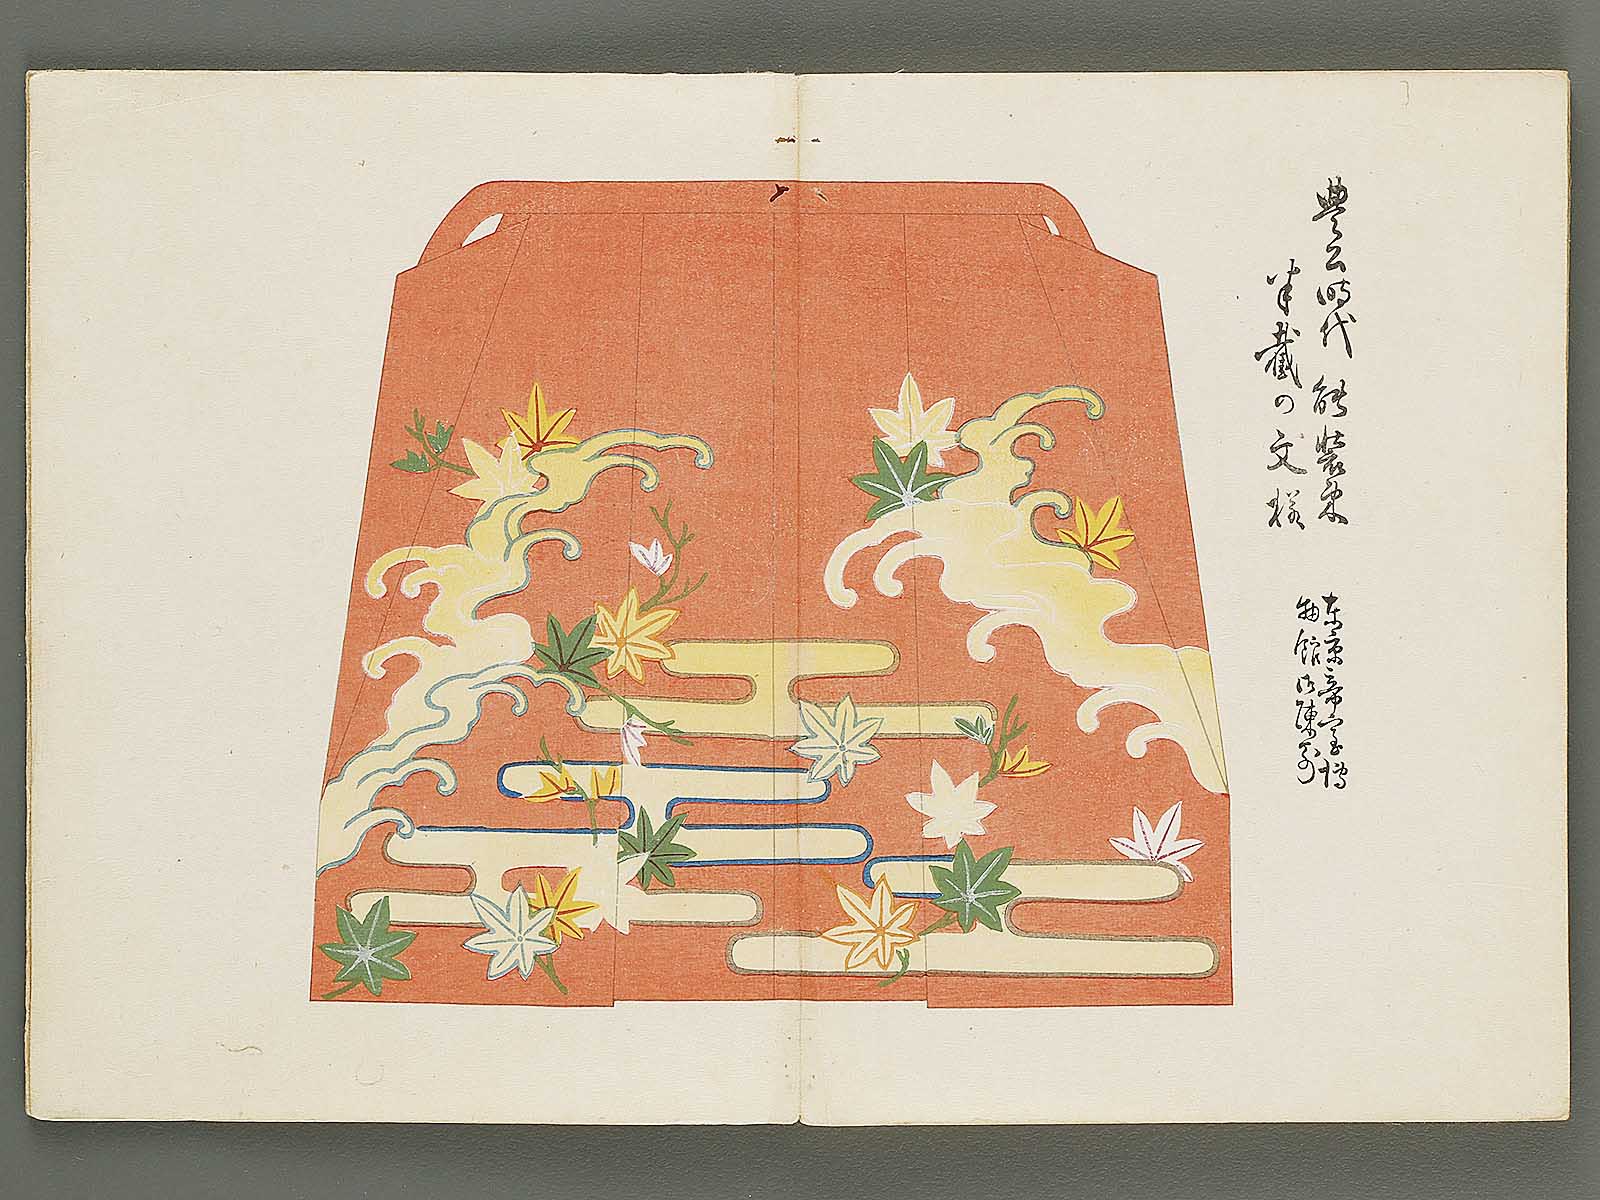 豊公時代 能装束
半截の文様
東京帝室博
物館御陳列